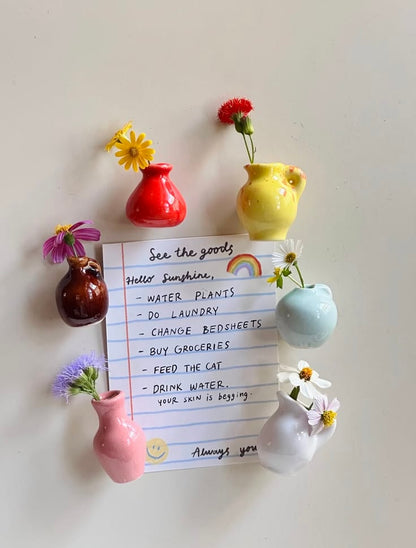 See the goods
Hello Sunshine,
- WATER PLANTS
- DO LAUNDRY
- CHANGE BEDSHEETS
- BUY GROCERIES
- FEED THE CAT
- DRINK WATER.
YOUR SKIN is begging.
Always you